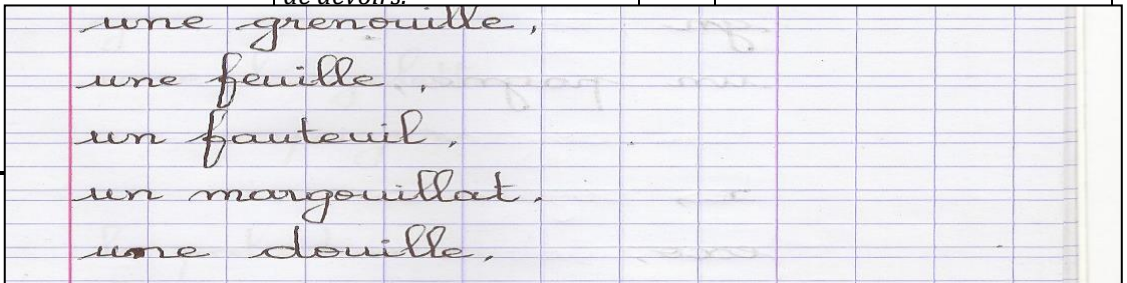 de devoirs.
une grenouille,
une feuille,
un fauteuil,
un margouillat.
une douille,